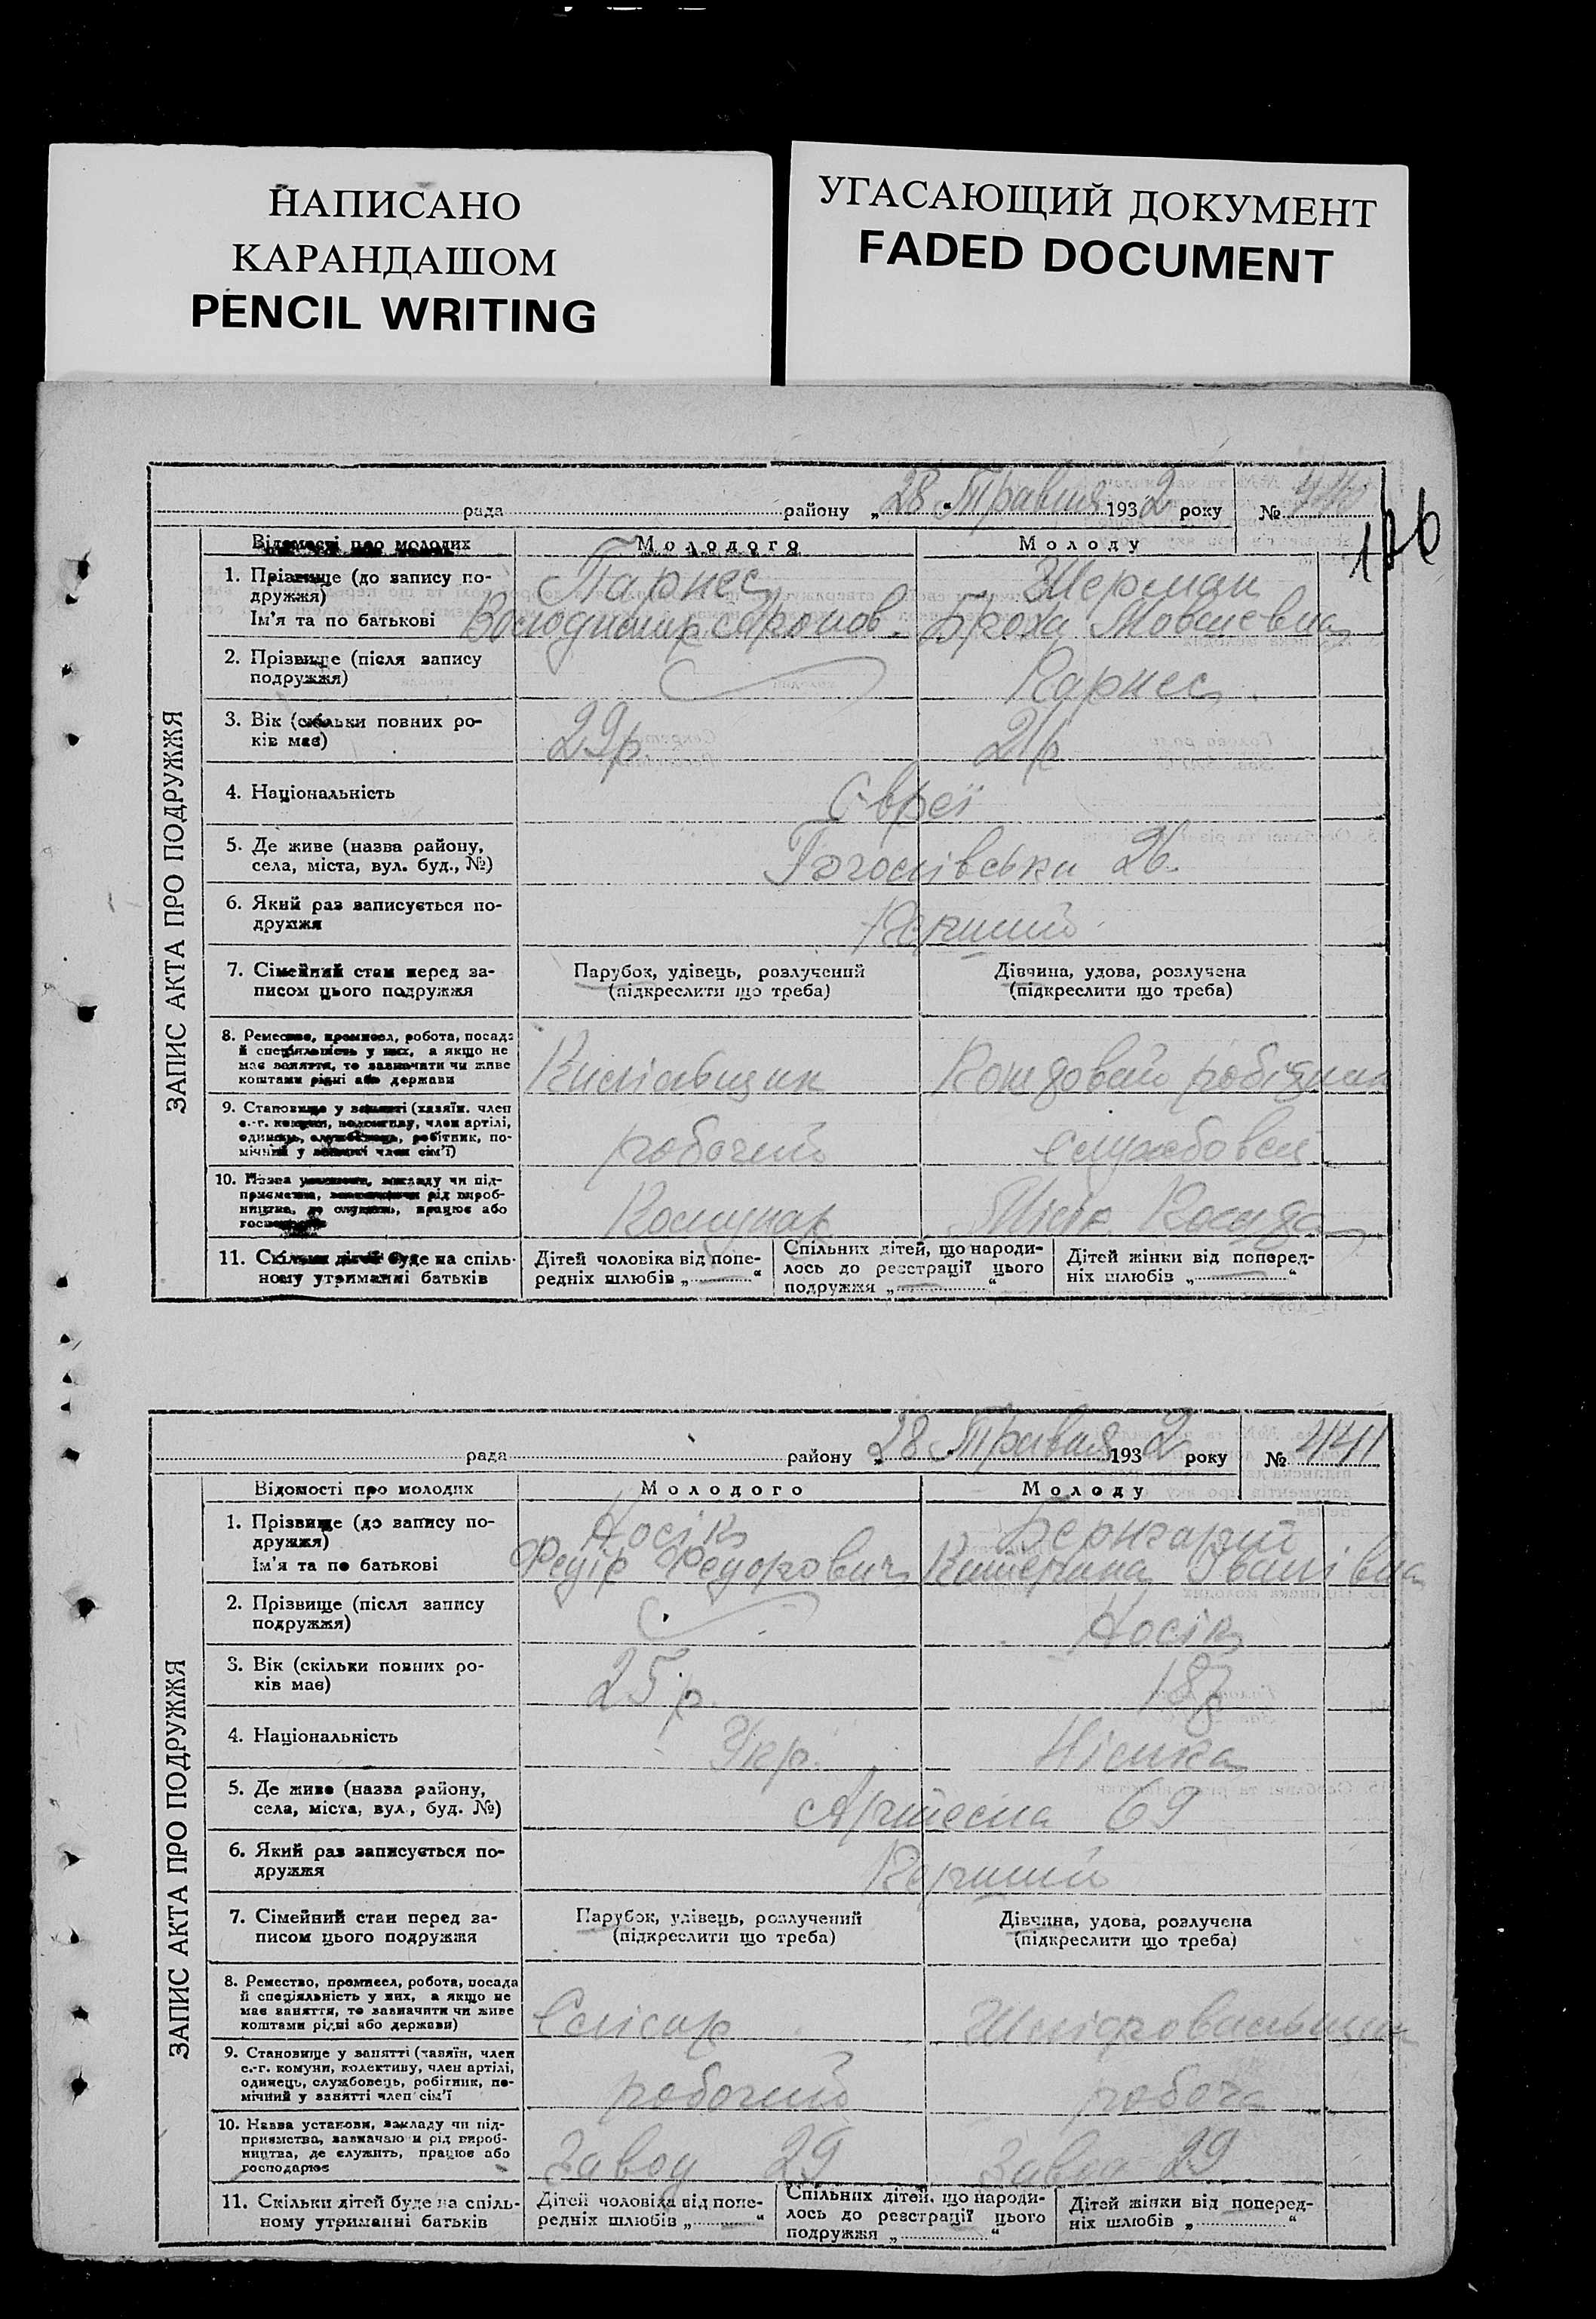 НАПИСАНО
КАРАНДАШОМ
PENCIL WRITING
УГАСАЮЩИЙ ДОКУМЕНТ
FADED DOCUMENT
176
ЗАПИС АКТА ПРО ПОДРУЖЖЯ
рада району „28“ Травня 1932 року № 440
Відомості про молодих Молодого Молоду
1. Прізвище (до запису по- Парнес Шерман
дружжя)
Ім'я та по батькові Володимир Аронов. Броха Мовшевна
2. Прізвище (після запису
подружжя) Парнес
3. Вік (скільки повних ро-
ків має) 29р. 21р
4. Національність Євреї
5. Де живе (назва району,
села, міста, вул. буд., №) 26.
6. Який раз записується по-
дружжя Перший
7. Сімейний стан перед за- Парубок, удівець, розлучений Дівчина, удова, розлучена
писом цього подружжя (підкреслити що треба) (підкреслити що треба)
8. Ремество, промисел, робота, посада
й спеціяльність у них, а якщо не
має заняття, то зазначити чи живе
коштами рідні або держави
9. Становище у занятті (хазяїн. член
с.-г. комуни, колективу, член артілі,
одинець, службовець, робітник, по-
мічний у занятті член сім'ї) робочий службовец
10. Назва установи, закладу чи під-
приємства, зазначаючи рід вироб-
ництва, де служить, працює або
господарює Комунар
11. Скільки дітей буде на спіль- Дітей чоловіка від попе- Спільних дітей, що народи- Дітей жінки від поперед-
ному утриманні батьків редніх шлюбів „ “ лось до реєстрації цього ніх шлюбів „ “
подружжя „ “
ЗАПИС АКТА ПРО ПОДРУЖЖЯ
рада району „28“ Травня 1932 року № 441
Відомості про молодих Молодого Молоду
1. Прізвище (до запису по- Носік
дружжя)
Ім'я та по батькові Федір Федорович Катерина Іванівна
2. Прізвище (після запису
подружжя) Носік
3. Вік (скільки повних ро-
ків має) 25р. 18р
4. Національність Укр. Німка
5. Де живе (назва району,
села, міста, вул., буд. №) Артема 69
6. Який раз записується по-
дружжя Перший
7. Сімейний стан перед за- Парубок, удівець, розлучений Дівчина, удова, розлучена
писом цього подружжя (підкреслити що треба) (підкреслити що треба)
8. Ремество, промисел, робота, посада
й спеціяльність у них, а якщо не
має заняття, то зазначити чи живе
коштами рідні або держави) Слісар Шліфовальщик
9. Становище у занятті (хазяїн, член
с.-г. комуни, колективу, член артілі,
одинець, службовець, робітник, по-
мічний у занятті член сім'ї робочий робоча
10. Назва установи, закладу чи під-
приємства, зазначаючи рід вироб-
ництва, де служить, працює або
господарює Завод 29 Завод 29
11. Скільки дітей буде на спіль- Дітей чоловіка від попе- Спільних дітей, що народи- Дітей жінки від поперед-
ному утриманні батьків редніх шлюбів „ “ лось до реєстрації цього ніх шлюбів „ “
подружжя „ “